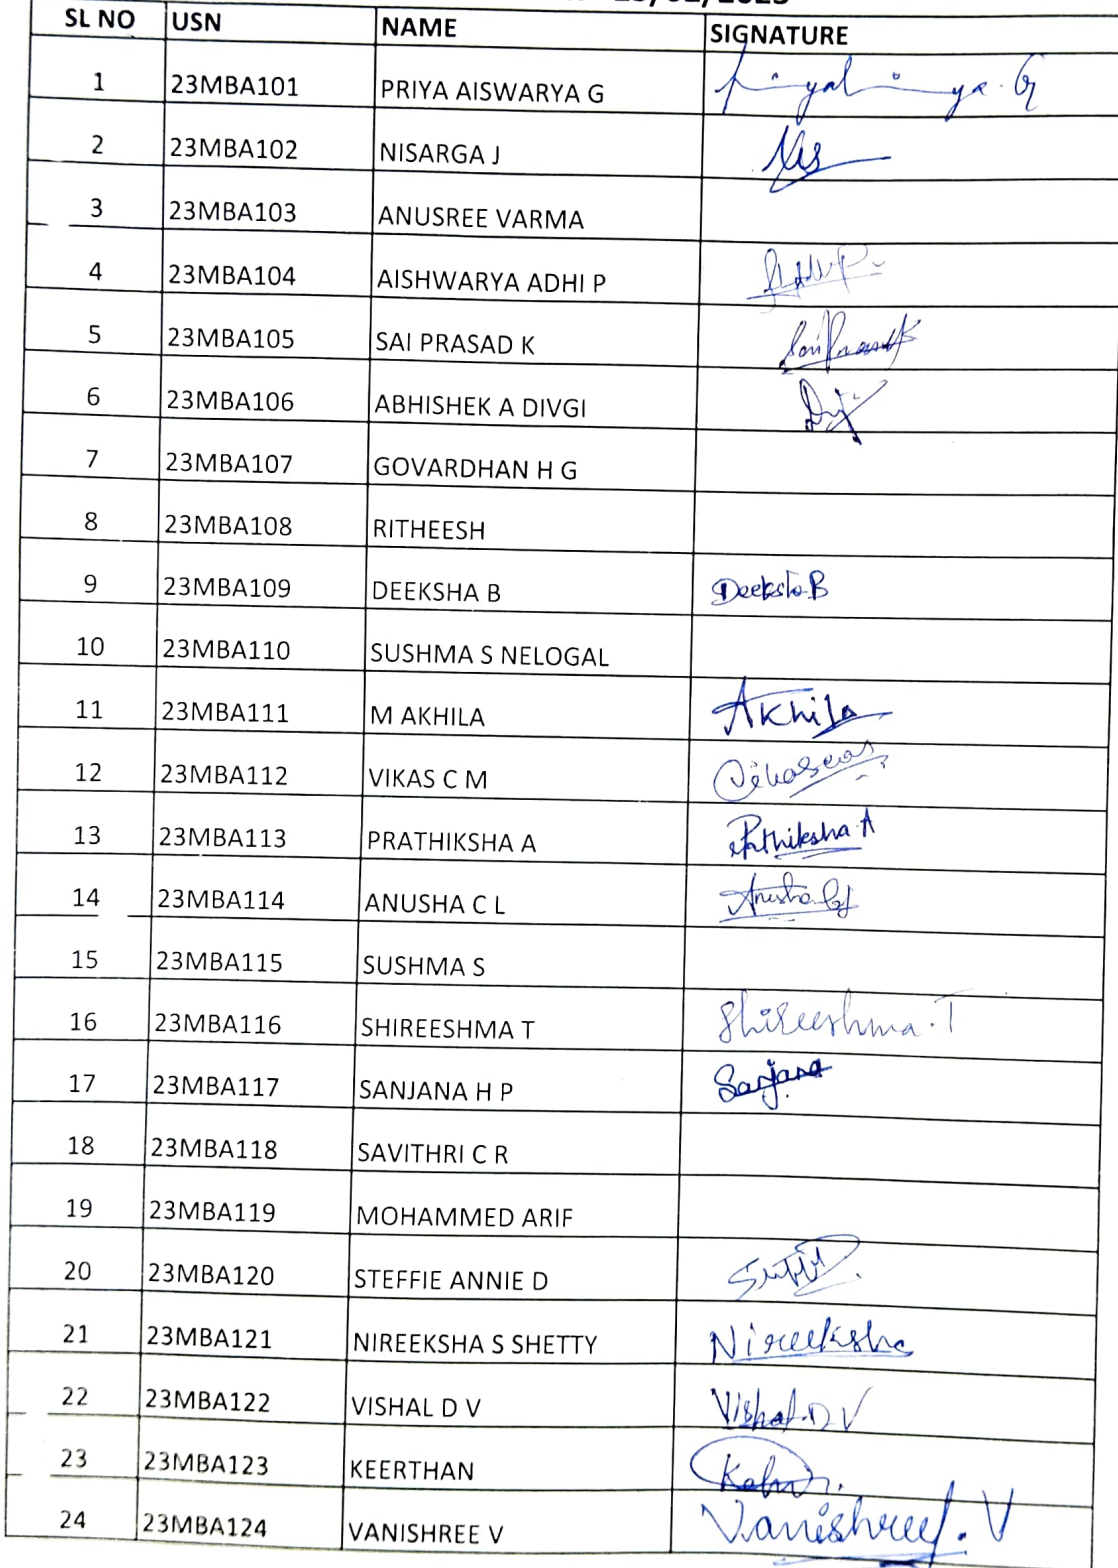 SL NO USN NAME SIGNATURE
1 23MBA101 PRIYA AISWARYA G
2 23MBA102 NISARGA J
3 23MBA103 ANUSREE VARMA
4 23MBA104 AISHWARYA ADHI P
5 23MBA105 SAI PRASAD K
6 23MBA106 ABHISHEK A DIVGI
7 23MBA107 GOVARDHAN H G
8 23MBA108 RITHEESH
9 23MBA109 DEEKSHA B Deeksha B
10 23MBA110 SUSHMA S NELOGAL
11 23MBA111 M AKHILA Akhila
12 23MBA112 VIKAS C M
13 23MBA113 PRATHIKSHA A Prathiksha A
14 23MBA114 ANUSHA C L Anusha
15 23MBA115 SUSHMA S
16 23MBA116 SHIREESHMA T Shireeshma.T
17 23MBA117 SANJANA H P Sanjana
18 23MBA118 SAVITHRI C R
19 23MBA119 MOHAMMED ARIF
20 23MBA120 STEFFIE ANNIE D
21 23MBA121 NIREEKSHA S SHETTY Nireeksha
22 23MBA122 VISHAL D V Vishal.D V
23 23MBA123 KEERTHAN
24 23MBA124 VANISHREE V Vanishree. V